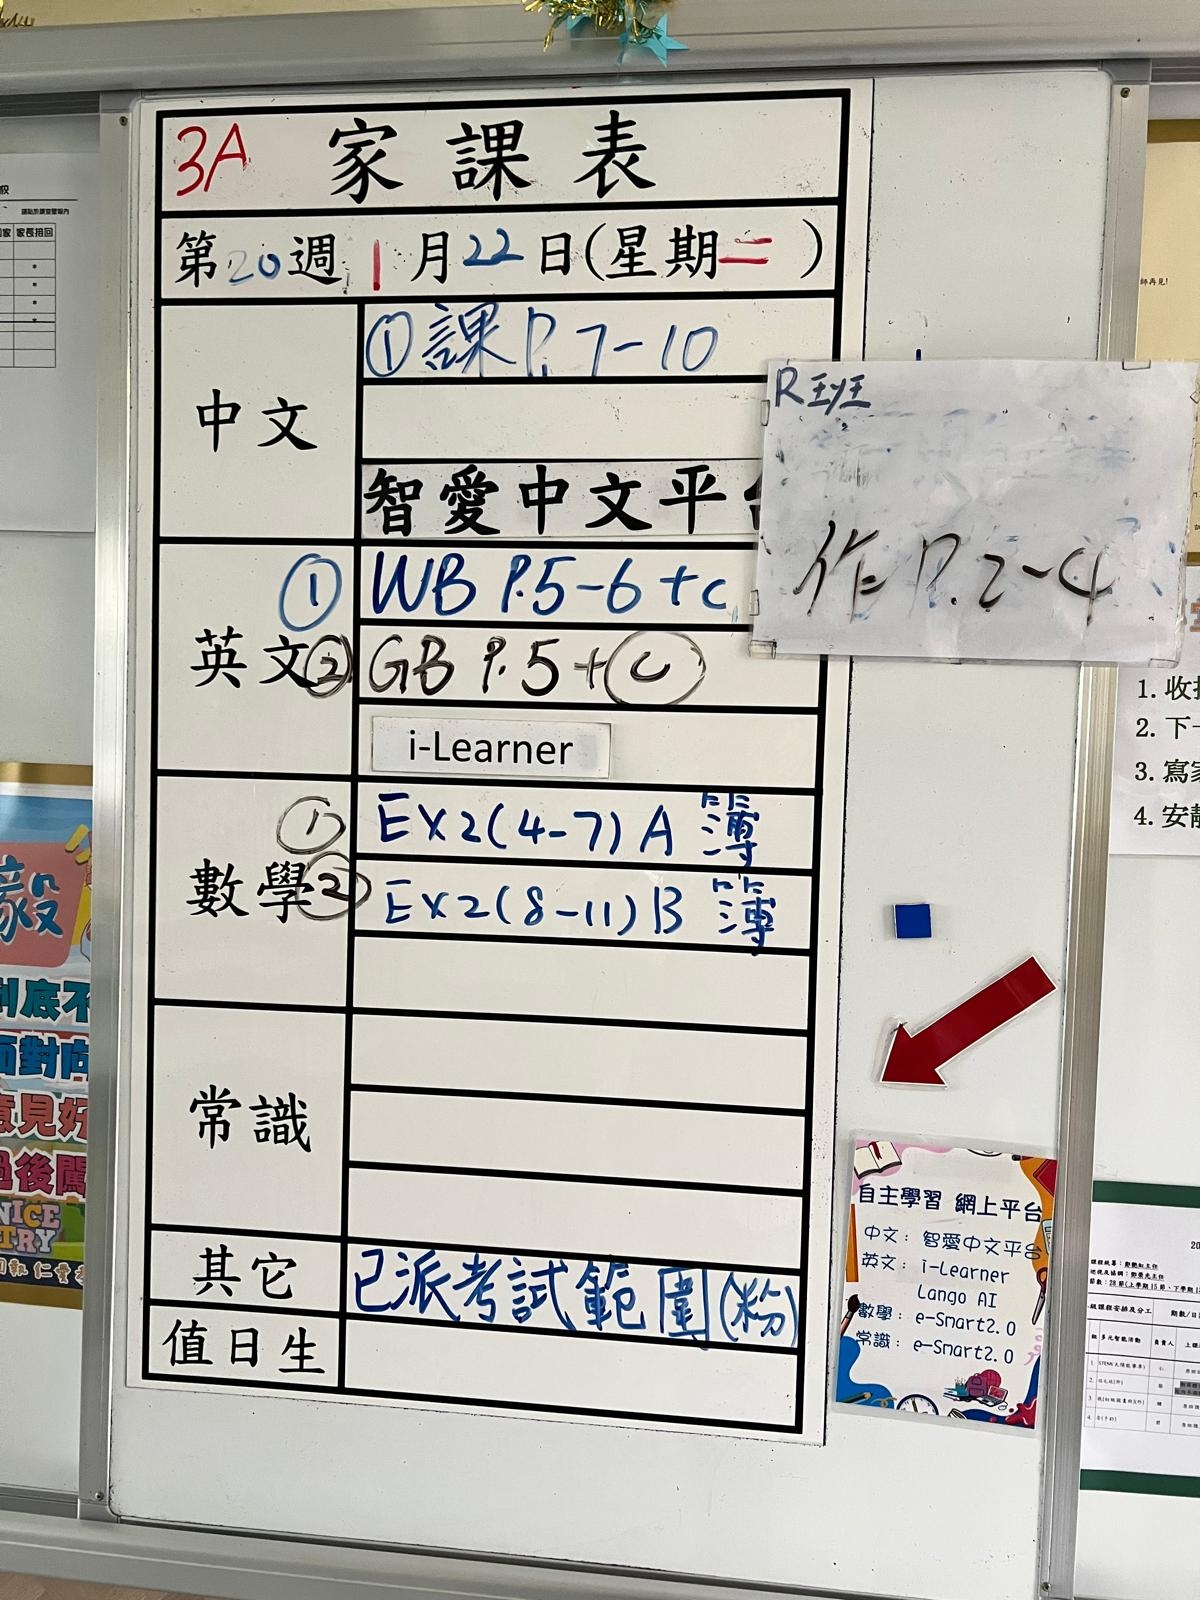 3A 家課表
第20週 1月22日(星期二)
中文
①課P.7-10
智愛中文平
R班
作P.2-4
英文
① WB P.5-6+c
② GB P.5+ⓒ
i-Learner
數學
① EX2(4-7)A簿
② EX2(8-11)B簿
常識
其它
已派考試範圍(粉)
值日生
自主學習 網上平台
中文：智愛中文平台
英文：i-Learner
Lango AI
數學：e-Smart2.0
常識：e-Smart2.0
家長捐回
師再見!
1. 收
2. 下一
3. 寫
4. 安
毅
到底不
面對向
意見好
過後闖
NICE
TRY